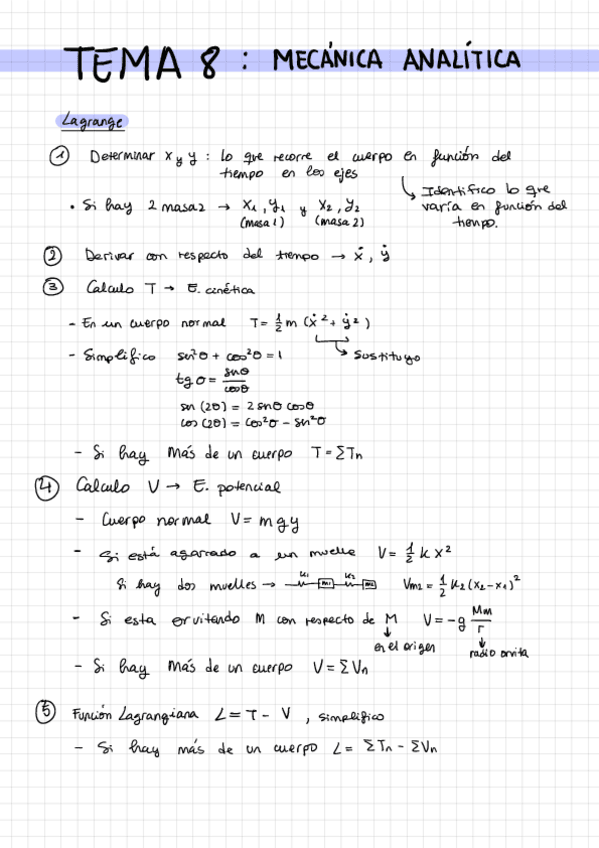 TEMA 8 : MECÁNICA ANALÍTICA
Lagrange
① Determinar x y y : lo que recorre el cuerpo en función del
tiempo en los ejes
↳ Identifico lo que
varía en función del
tiempo.
• Si hay 2 masas → x₁, y₁ y x₂, y₂
(masa 1) (masa 2)
② Derivar con respecto del tiempo → ẋ, ẏ
③ Calculo T → E. cinética
- En un cuerpo normal T = 1/2 m (ẋ² + ẏ²)
↳ Sustituyo
- Simplifico sen²θ + cos²θ = 1
tg θ = senθ/cosθ
sen (2θ) = 2 senθ cosθ
cos (2θ) = cos²θ - sen²θ
- Si hay más de un cuerpo T = ΣTn
④ Calculo V → E. potencial
- Cuerpo normal V = mgy
- Si está agarrado a un muelle V = 1/2 k x²
Si hay dos muelles → k₁ m₁ k₂ m₂ Vm₂ = 1/2 k₂ (x₂-x₁)²
- Si esta orvitando m con respecto de M V = -g Mm/r
↓ en el origen ↓ radio orvita
- Si hay más de un cuerpo V = ΣVn
⑤ Función Lagrangiana L = T - V , simplifico
- Si hay más de un cuerpo L = ΣTn - ΣVn